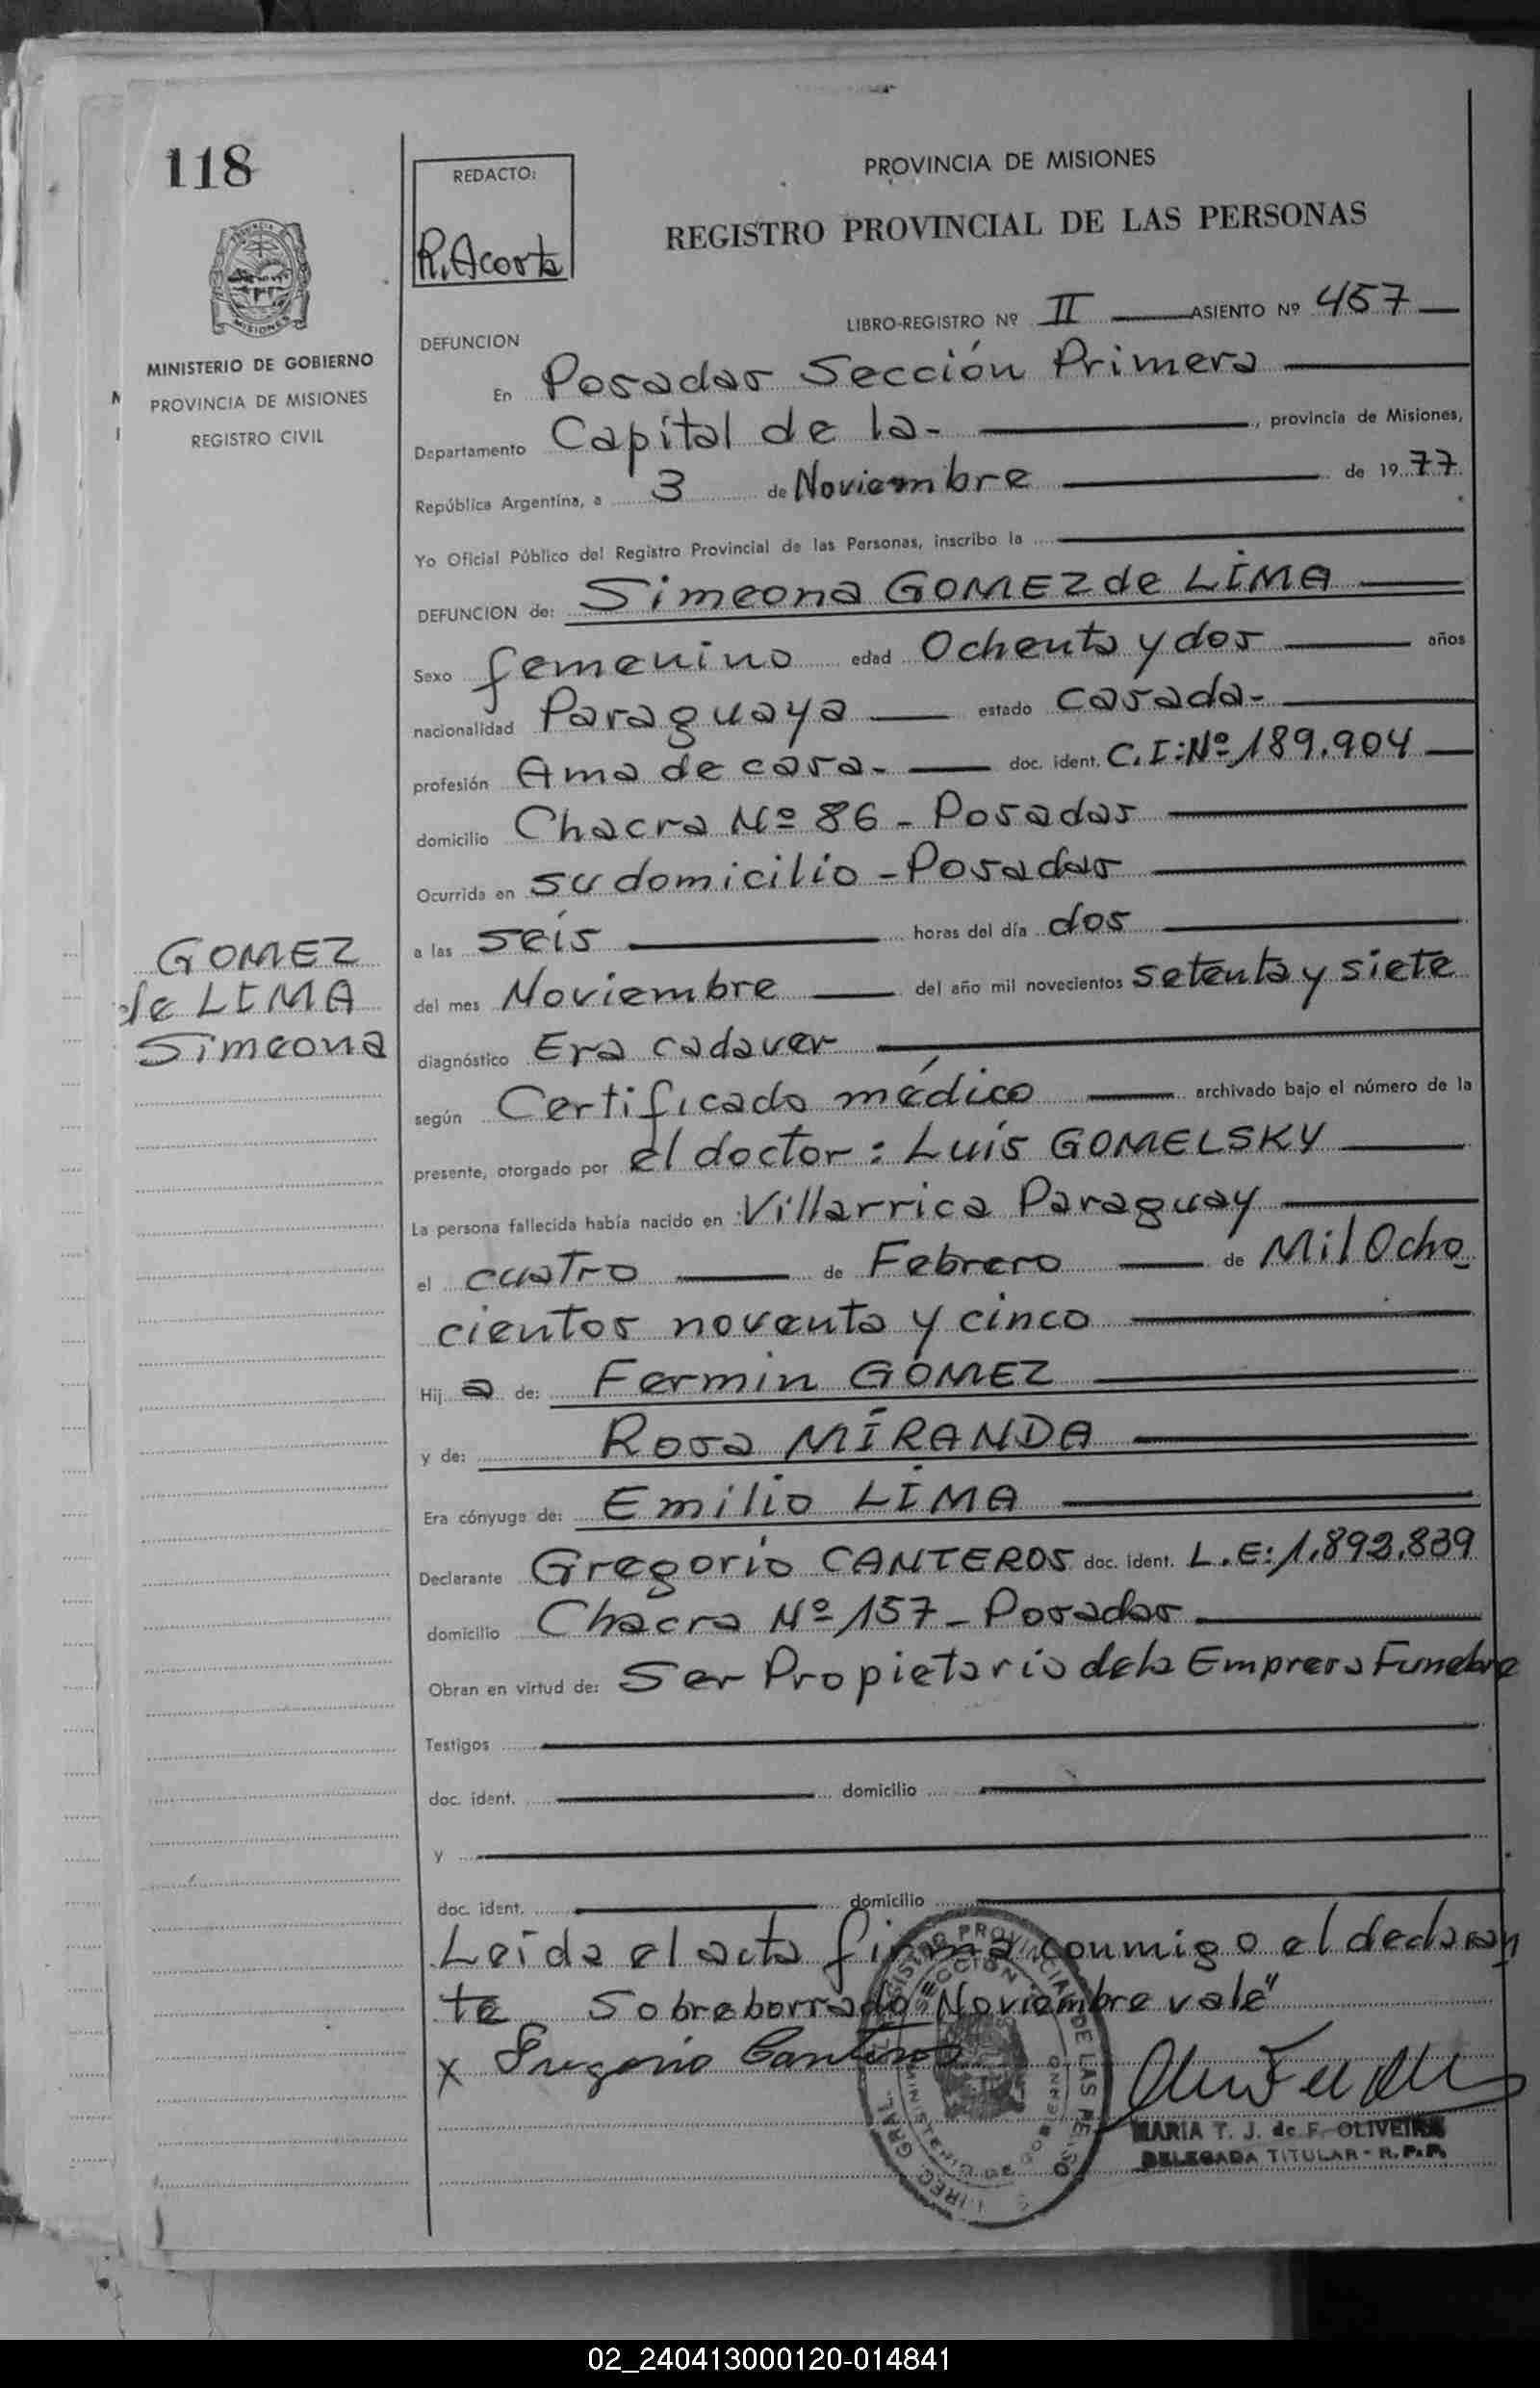 118
REDACTO:
R. Acosta
PROVINCIA DE MISIONES
REGISTRO PROVINCIAL DE LAS PERSONAS
MISIONES
MINISTERIO DE GOBIERNO
PROVINCIA DE MISIONES
REGISTRO CIVIL
LIBRO-REGISTRO Nº II ASIENTO Nº 457
DEFUNCION
En Posadas Sección Primera
Departamento Capital de la- , provincia de Misiones,
República Argentina, a 3 de Noviembre de 1977
Yo Oficial Público del Registro Provincial de las Personas, inscribo la
DEFUNCION de: Simeona GOMEZ de LIMA
Sexo femenino edad Ochenta y dos años
nacionalidad Paraguaya estado casada-
profesión Ama de casa- doc. ident. C.I:Nº 189.904
domicilio Chacra Nº 86 - Posadas
Ocurrida en su domicilio - Posadas
a las seis horas del día dos
del mes Noviembre del año mil novecientos setenta y siete
diagnóstico Era cadaver
según Certificado médico archivado bajo el número de la
presente, otorgado por el doctor: Luis GOMELSKY
La persona fallecida había nacido en Villarrica Paraguay
el cuatro de Febrero de Mil Ocho
cientos noventa y cinco
Hija de: Fermin GOMEZ
y de: Rosa MIRANDA
Era cónyuge de: Emilio LIMA
Declarante Gregorio CANTEROS doc. ident. L.E: 1.892.839
domicilio Chacra Nº 157 - Posadas
Obran en virtud de: Ser Propietario de la Empresa Funebre
Testigos
doc. ident. domicilio
y
doc. ident. domicilio
Leida el acta firma conmigo el declaran
te Sobreborrado "Noviembre vale"
x Gregorio Canteros
MARIA T. J. de F. OLIVEIRA
DELEGADA TITULAR - R.P.P.
GOMEZ
de LIMA
Simeona
02_240413000120-014841